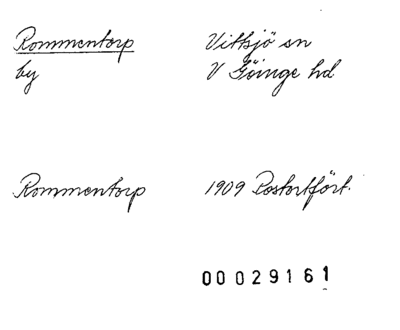 Rommentorp Vittsjö sn
by V Göinge hd
Rommentorp 1909 Postortfört.
00029161